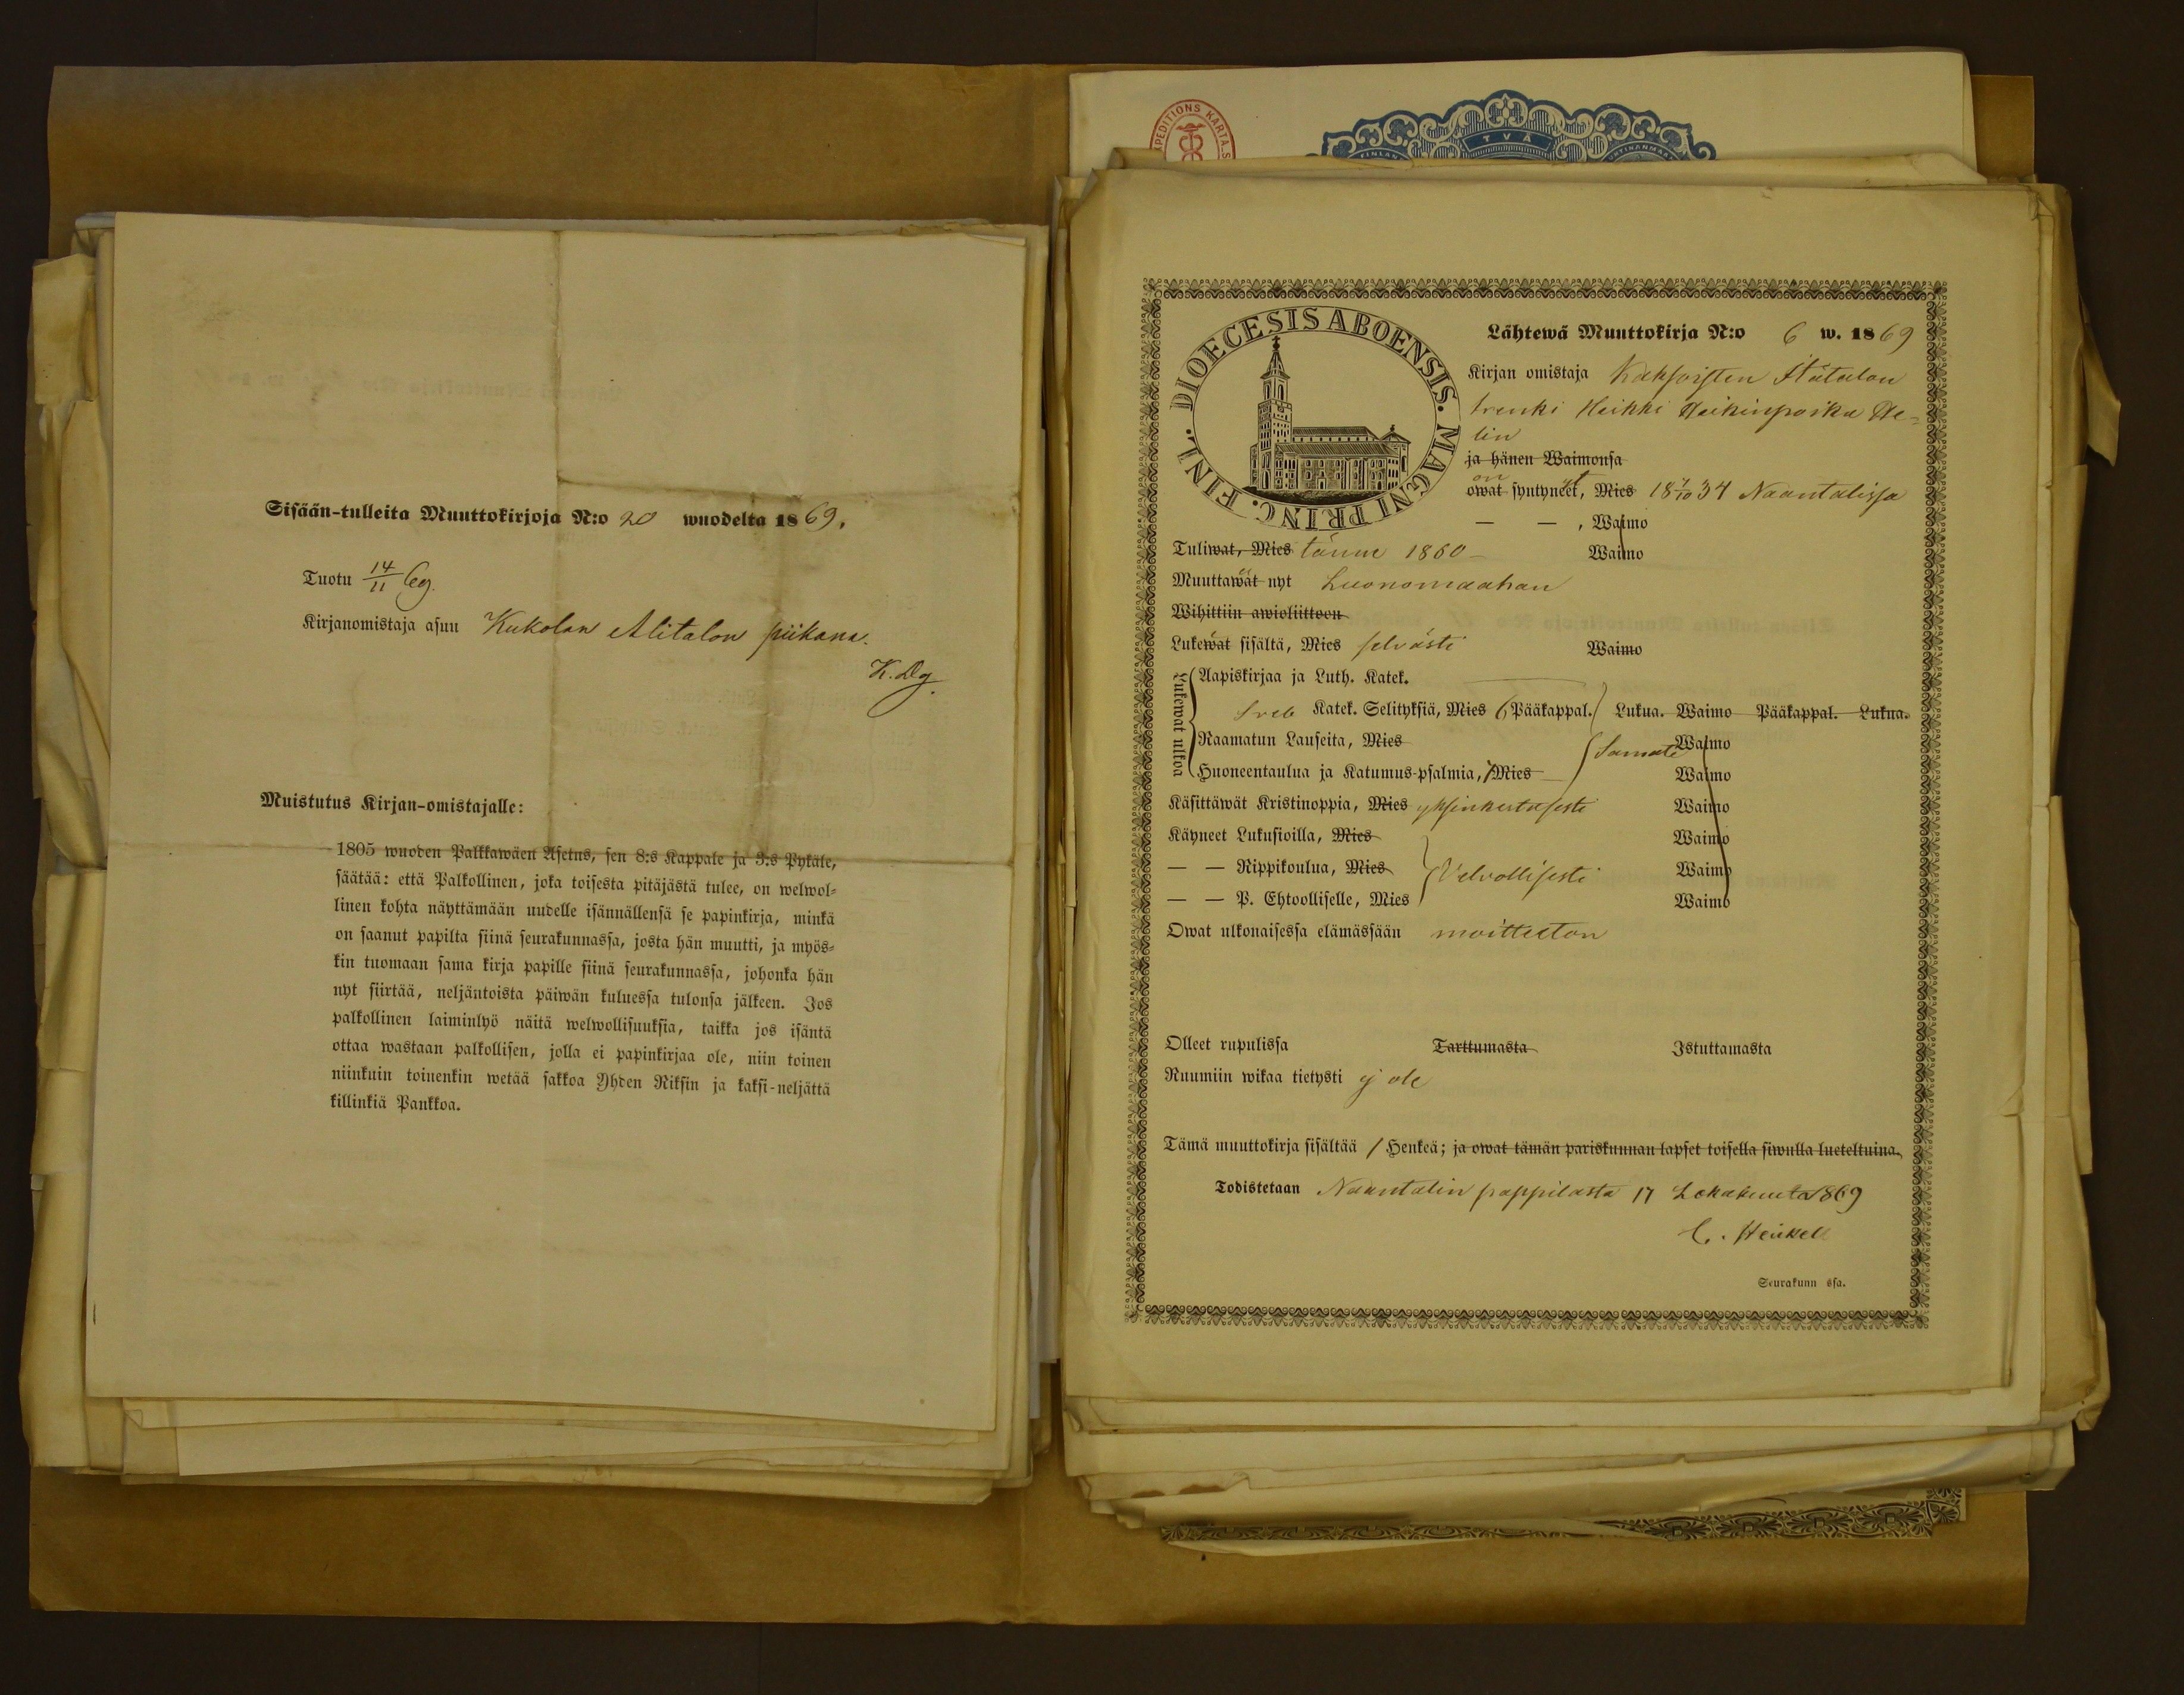 Sisään-tulleita Muuttokirjoja N:o 20 wuodelta 1869.
Tuotu 14/11 69.
Kirjanomistaja asuu Kukolan Alitalon piikana.
K. Dg.
Muistutus Kirjan-omistajalle:
1805 wuoden Palkkawäen Asetus, sen 8:s Kappale ja 3:s Pykäle,
säätää: että Palkollinen, joka toisesta pitäjästä tulee, on welwol=
linen kohta näyttämään uudelle isännällensä se papinkirja, minkä
on saanut papilta siinä seurakunnassa, josta hän muutti, ja myös=
kin tuomaan sama kirja papille siinä seurakunnassa, johonka hän
nyt siirtää, neljäntoista päiwän kuluessa tulonsa jälkeen. Jos
palkollinen laiminlyö näitä welwollisuuksia, taikka jos isäntä
ottaa wastaan palkollisen, jolla ei papinkirjaa ole, niin toinen
niinkuin toinenkin wetää sakkoa Yhden Riksin ja kaksi-neljättä
killinkiä Pankkoa.
EXPEDITIONS KARTA
TVÅ
DIOECESIS ABOENSIS. MAGNI PRINC. FINL.
Lähtewä Muuttokirja N:o 6 w. 1869
Kirjan omistaja Kaksoisten Itätalon
trenki Heikki Heikinpoika He=
lin
ja hänen Waimonsa
on
owat syntyneet, Mies 18 7/10 34 Naantalissa
— — , Waimo
Tuliwat, Mies tänne 1860 — Waimo
Muuttawat nyt Luonomaahan
Wihittiin awioliittoon
Lukewat sisältä, Mies selvästi Waimo
Lukewat ulkoa
Aapiskirjaa ja Luth. Katek.
Sveb Katek. Selityksiä, Mies 6 Pääkappal. Lukua. Waimo Pääkappal. Lukua.
Raamatun Lauseita, Mies Samate Waimo
Huoneentaulua ja Katumus-psalmia, 7 Mies Waimo
Käsittäwät Kristinoppia, Mies yksinkertasesti Waimo
Käyneet Lukusioilla, Mies Waimo
— — Rippikoulua, Mies Velvollisesti Waimo
— — P. Ehtoolliselle, Mies Waimo
Owat ulkonaisessa elämässään moitteeton
Olleet rupulissa Tarttumasta Istuttamasta
Ruumiin wikaa tietysti ej ole
Tämä muuttokirja sisältää 1 Henkeä; ja owat tämän pariskunnan lapset toisella siwulla lueteltuina.
Todistetaan Naantalin pappilasta 17 Lokakuuta 1869
C. Heikell
Seurakunn ssa.